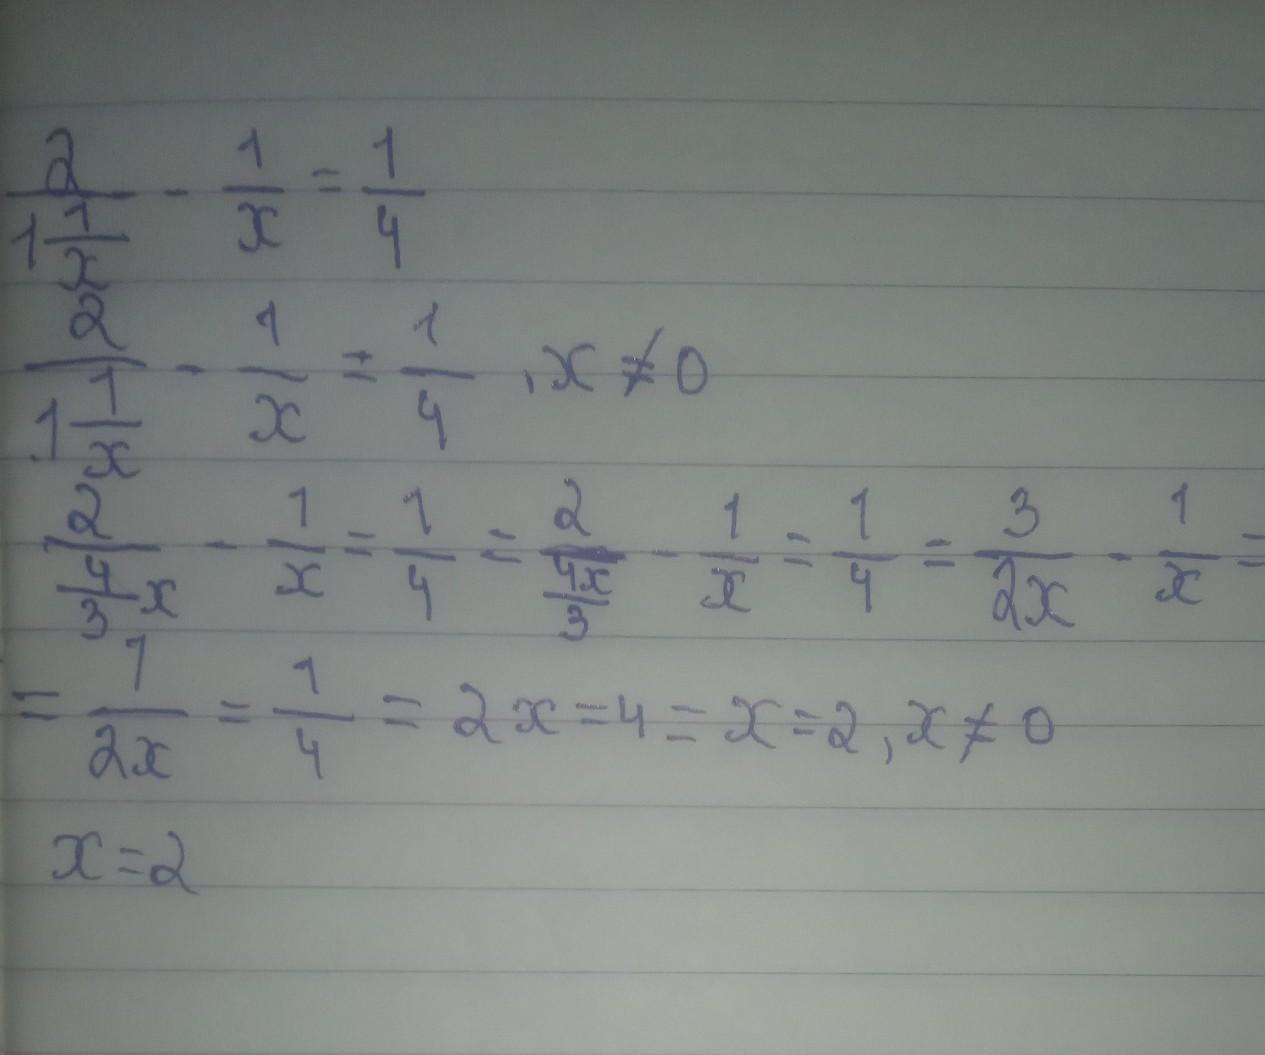 2/(1 1/x) - 1/x = 1/4
2/(1 1/x) - 1/x = 1/4 , x ≠ 0
2/(4/3 x) - 1/x = 1/4 = 2/(4x/3) - 1/x = 1/4 = 3/2x - 1/x =
= 1/2x = 1/4 = 2x = 4 = x = 2, x ≠ 0
x = 2